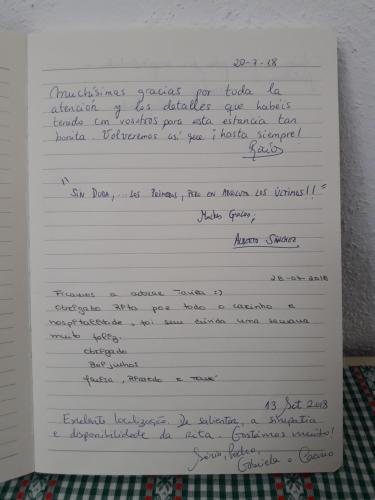 20-7-18
Muchísimas gracias por toda la
atención y los detalles que habéis
tenido con vosotros para esta estancia tan
bonita. Volveremos así que ¡hasta siempre!
"Sin Duda,... los Primeros, pero en los Últimos!!"
Muchas Gracias;
Alberto Sánchez
28-07-2018
Ficamos a adorar Tavira :)
Obrigado Rita por todo o carinho e
hospitalidade, foi sem dúvida uma semana
muito feliz.
Obrigado
Beijinhos
e
13 Set 2018
Excelente localização. De salientar, a simpatia
e disponibilidade da Rita. Gostámos muito!
Pedro,
Gabriela e